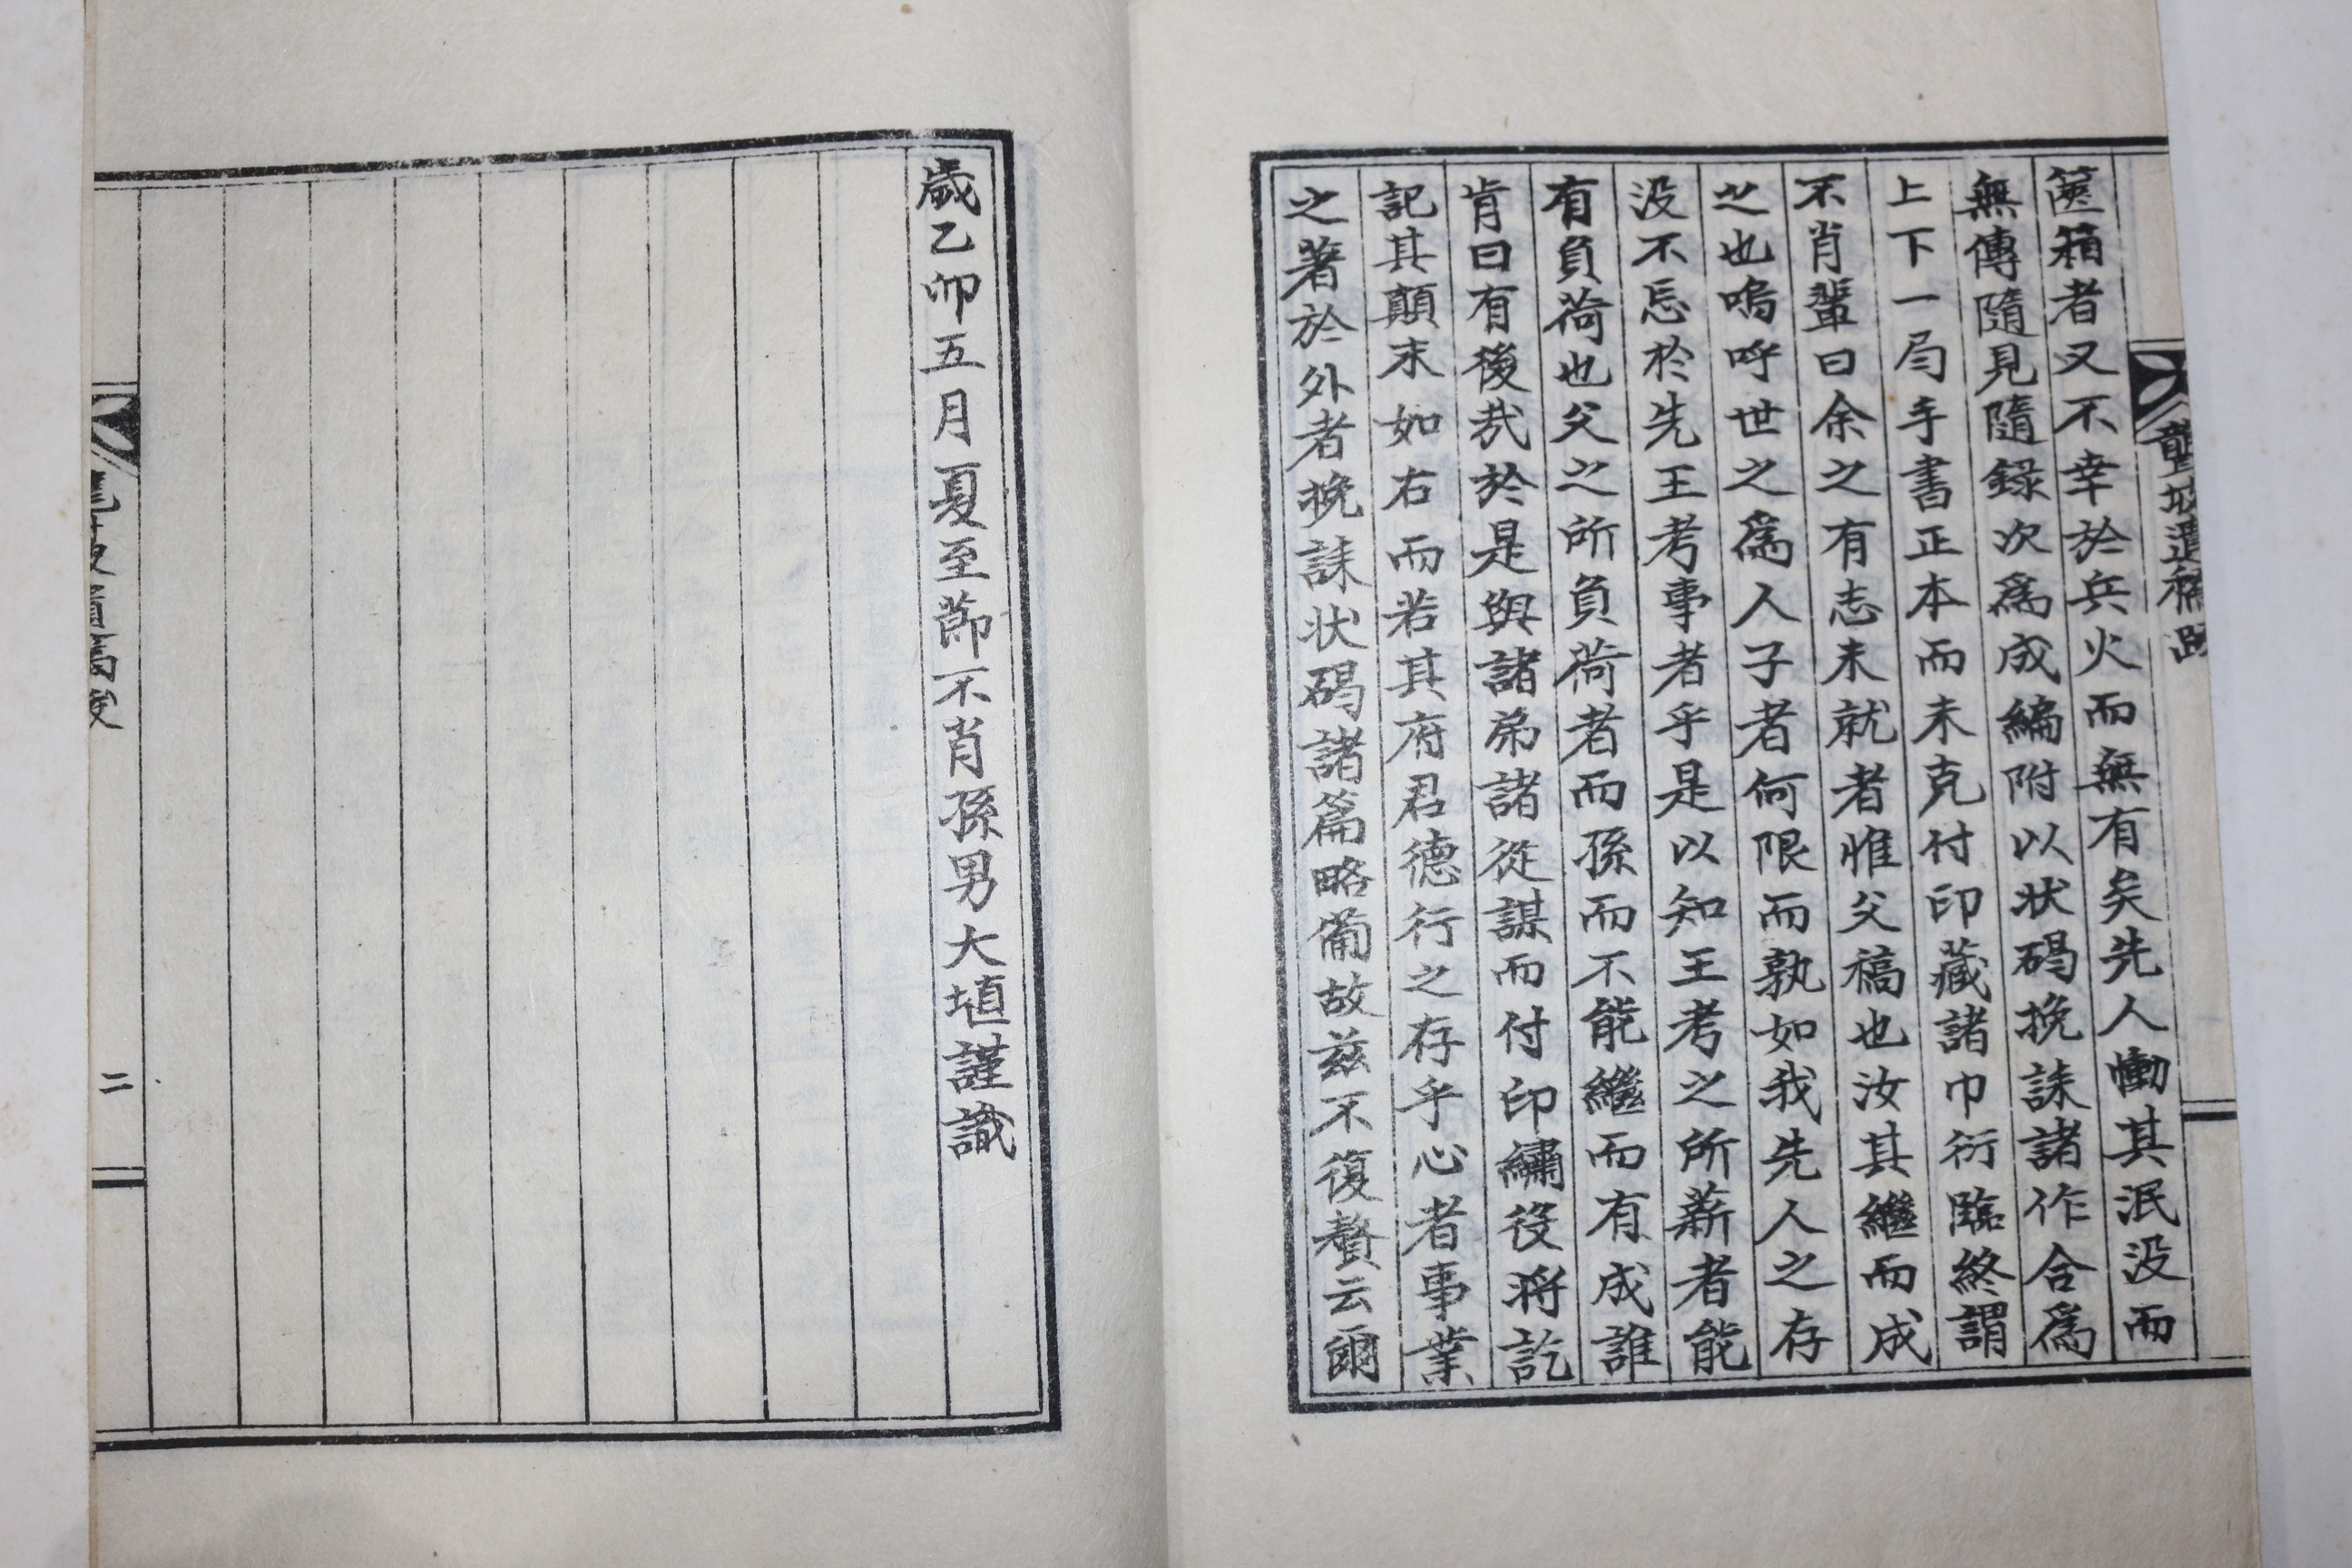 篋箱者又不幸於兵火而無有矣先人慟其泯没而
無傳隨見隨録次爲成編附以狀碣挽誄諸作合爲
上下一局手書正本而未克付印藏諸巾衍臨終謂
不肖輩曰余之有志未就者惟父稿也汝其繼而成
之也嗚呼世之爲人子者何限而孰如我先人之存
没不忘於先王考事者乎是以知王考之所薪者能
有負荷也父之所負荷者而孫而不能繼而有成誰
肯曰有後哉於是與諸弟諸從謀而付印繡役將訖
記其顛末如右而若其府君德行之存乎心者事業
之著於外者挽誄狀碣諸篇略葡故茲不復贅云爾
歲乙卯五月夏至節不肖孫男大埴謹識
二